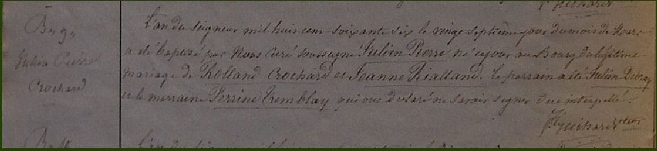 Bap.
Julien Pierre
Crochard
L'an du Seigneur mil huit cent soixante six le vingt septième jour du mois de
a été baptisé par Nous Curé soussigné Julien Pierre né ce jour au Bourg du légitime
mariage de Rolland Crochard et Jeanne Rialland. Le parrain a été Julien
et la marraine Perrine Tremblay qui ont déclaré ne savoir signer de ce interpellé.
Guichard